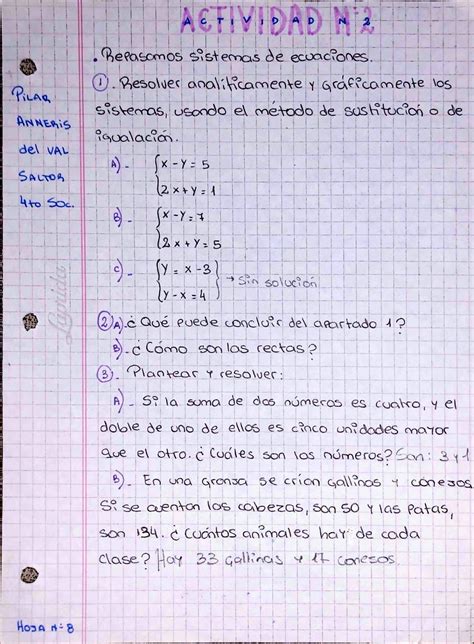 ACTIVIDAD N°2
. Repasamos sistemas de ecuaciones.
①. Resolver analíticamente y gráficamente los
sistemas, usando el método de sustitución o de
igualación.
A)- { x - y = 5
2x + y = 1
B)- { x - y = 7
2x + y = 5
C)- { y = x - 3
y - x = 4 } → Sin solución
② A)¿ Qué puede concluir del apartado 1?
B)-¿ Cómo son las rectas?
③. Plantear y resolver:
A)- Si la suma de dos números es cuatro, y el
doble de uno de ellos es cinco unidades mayor
que el otro. ¿ Cuáles son los números? Son: 3 y 1
B)- En una granja se crían gallinas y conejos
Si se cuentan las cabezas, son 50 y las patas,
son 134. ¿ Cuántos animales hay de cada
clase? Hay 33 gallinas y 17 conejos.
PILAR
ANNERIS
del VAL
SALTOR
4to Soc.
Laprida
HOJA N°8